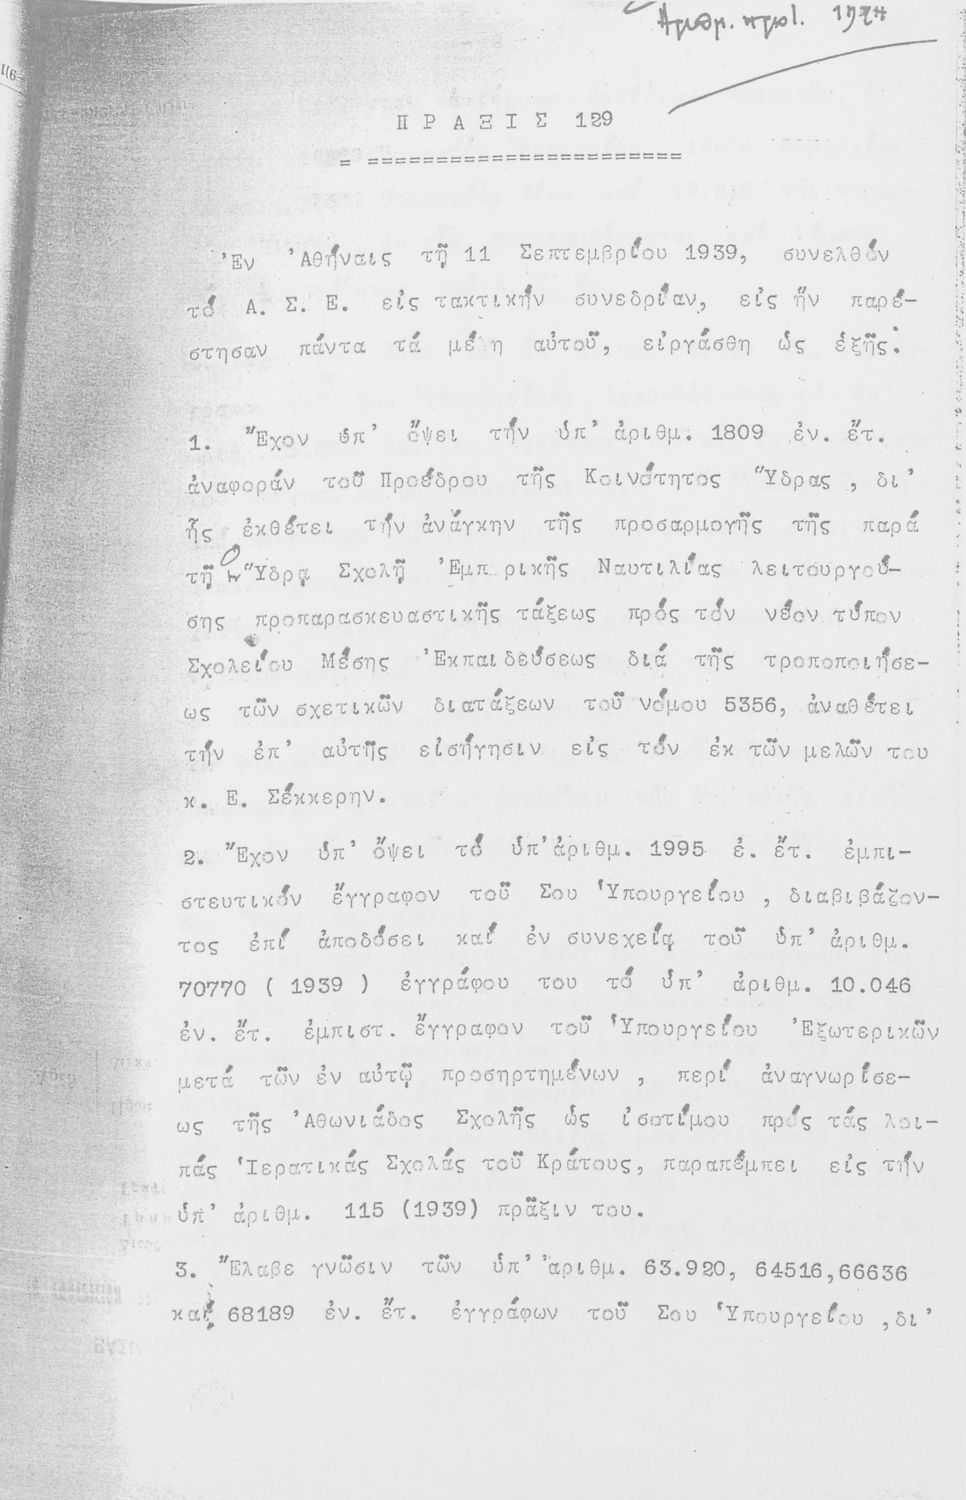 Ἀριθμ. πρωτ.
ΠΡΑΞΙΣ 129
= =======================
Ἐν Ἀθήναις τῇ 11 Σεπτεμβρίου 1939, συνελθόν
τό Α. Σ. Ε. εἰς τακτικήν συνεδρίαν, εἰς ἥν παρέ-
στησαν πάντα τά μέλη αὐτοῦ, εἰργάσθη ὡς ἑξῆς:
1. Ἔχον ὑπ' ὄψει τήν ὑπ' ἀριθμ. 1809 ἐν. ἔτ.
ἀναφοράν τοῦ Προέδρου τῆς Κοινότητος Ὕδρας, δι'
ἧς ἐκθέτει τήν ἀνάγκην τῆς προσαρμογῆς τῆς παρά
τῇ ἐν Ὕδρᾳ Σχολῇ Ἐμπορικῆς Ναυτιλίας λειτουργού-
σης προπαρασκευαστικῆς τάξεως πρός τόν νέον τύπον
Σχολείου Μέσης Ἐκπαιδεύσεως διά τῆς τροποποιήσε-
ως τῶν σχετικῶν διατάξεων τοῦ νόμου 5356, ἀναθέτει
τήν ἐπ' αὐτῆς εἰσήγησιν εἰς τόν ἐκ τῶν μελῶν του
κ. Ε. Σέκκερην.
2. Ἔχον ὑπ' ὄψει τό ὑπ' ἀριθμ. 1995 ἐ. ἔτ. ἐμπι-
στευτικόν ἔγγραφον τοῦ Σου Ὑπουργείου, διαβιβάζον-
τος ἐπί ἀποδόσει καί ἐν συνεχείᾳ τοῦ ὑπ' ἀριθμ.
70770 ( 1939 ) ἐγγράφου του τό ὑπ' ἀριθμ. 10.046
ἐν. ἔτ. ἐμπιστ. ἔγγραφον τοῦ Ὑπουργείου Ἐξωτερικῶν
μετά τῶν ἐν αὐτῷ προσηρτημένων, περί ἀναγνωρίσε-
ως τῆς Ἀθωνιάδος Σχολῆς ὡς ἰσοτίμου πρός τάς λοι-
πάς Ἱερατικάς Σχολάς τοῦ Κράτους, παραπέμπει εἰς τήν
ὑπ' ἀριθμ. 115 (1939) πρᾶξιν του.
3. Ἔλαβε γνῶσιν τῶν ὑπ' ἀριθμ. 63.920, 64516,66636
καί 68189 ἐν. ἔτ. ἐγγράφων τοῦ Σου Ὑπουργείου, δι'